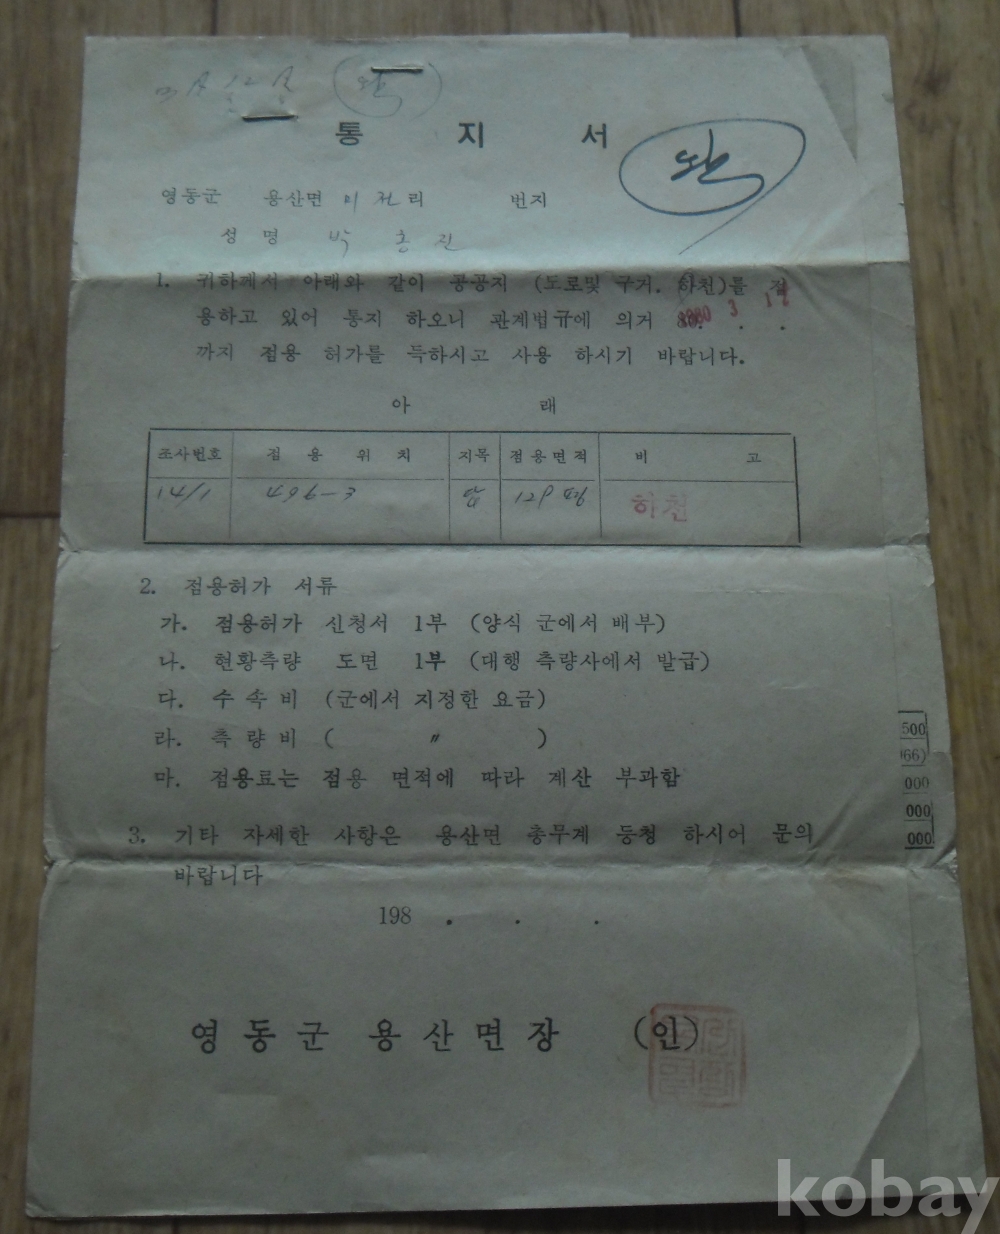 완
통 지 서
완
영동군 용산면 미전리 번지
성 명 박 종 진
1. 귀하께서 아래와 같이 공공지 (도로및 구거. 하천)를 점
용하고 있어 통지 하오니 관계법규에 의거 3 . .
까지 점용 허가를 득하시고 사용 하시기 바랍니다.
아 래
조사번호 점 용 위 치 지목 점용면적 비 고
14/1 496-3 답 129평 하천
2. 점용허가 서류
가. 점용허가 신청서 1부 (양식 군에서 배부)
나. 현황측량 도면 1부 (대행 측량사에서 발급)
다. 수 속 비 (군에서 지정한 요금)
라. 측 량 비 ( 〃 )
마. 점용료는 점용 면적에 따라 계산 부과함
500
66)
000
000
000
3. 기타 자세한 사항은 용산면 총무계 등청 하시어 문의
바랍니다
198 . . .
영동군 용산면장 (인)
kobay